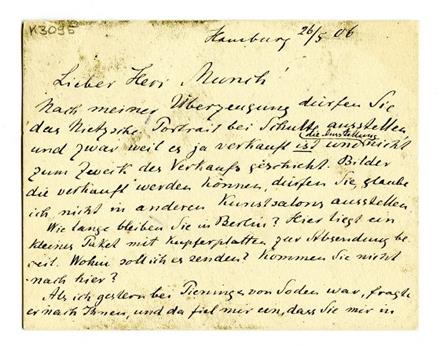 K3095
Hamburg 26/5 06
Lieber Herr Munch!
Nach meiner Überzeugung dürfen Sie
das Nietzsche Portrait bei Schulte ausstellen,
und zwar weil es ja verkauft ist und nicht die Ausstellung
zum Zweck des Verkaufs geschieht. Bilder
die verkauft werden können, dürfen Sie, glaube
ich, nicht in anderen Kunstsalons ausstellen.
Wie lange bleiben Sie in Berlin? Hier liegt ein
kleines Paket mit Kupferplatten zur Absendung be-
reit. Wohin soll ich es senden? Kommen Sie nicht
nach hier?
Als ich gestern bei von Soden war, fragte
er nach Ihnen, und da fiel mir ein, dass Sie mir in